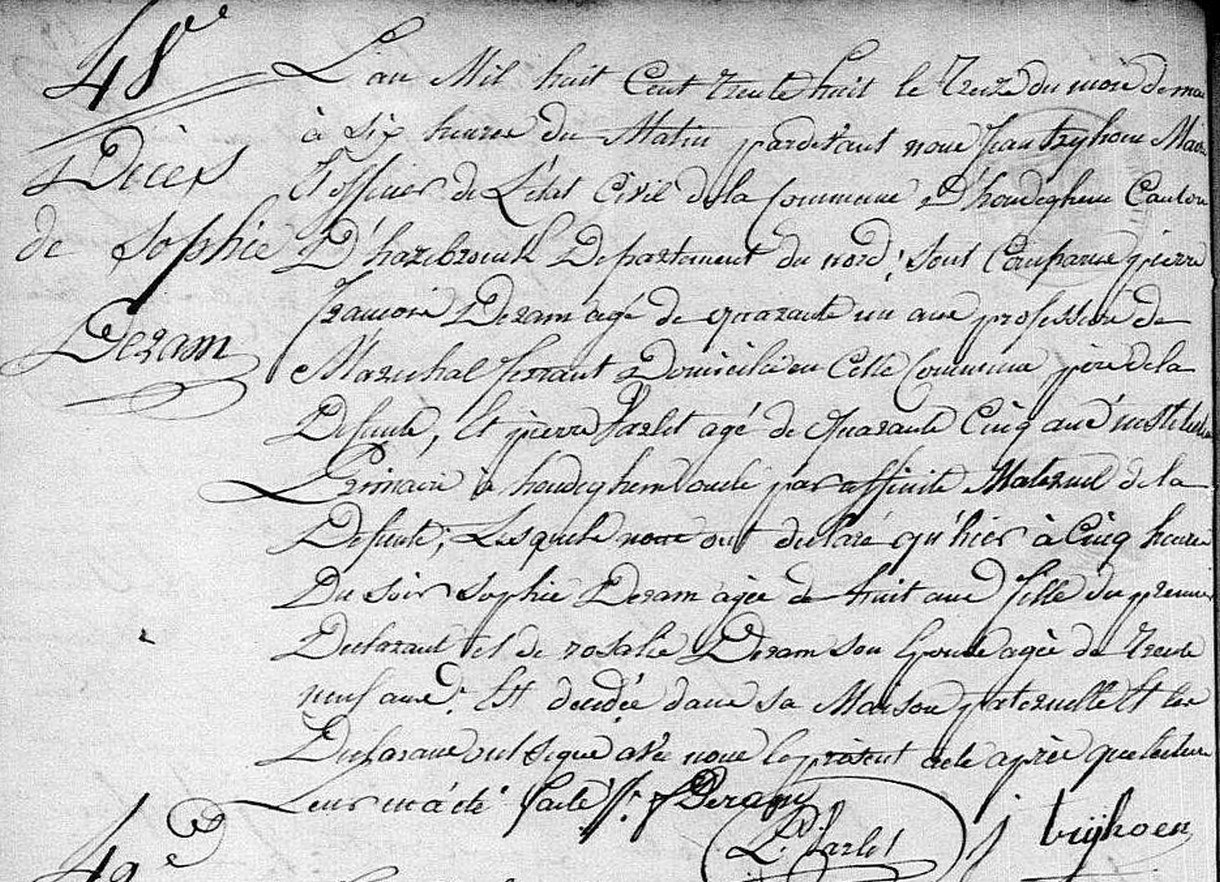 48e
Décès
de Sophie
Deram
L'an Mil huit Cent trente huit le treize du mois de mai
à Six heures du Matin pardevant nous Jean tryhoen Maire
Et officier de L'état Civil de la Commune D'hondeghem Canton
D'hazebrouck Departement du nord; sont Comparus pierre
francois Deram agé de quarante un ans profession de
Maréchal ferrant Domicilié en Cette Commune père de la
Defunte, Et pierre Varlet agé de Quarante Cinq ans instituteur
Primaire à hondeghem oncle par affinité Maternel de la
Defunte; Lesquels nous ont declaré qu'hier à Cinq heures
Du Soir Sophie Deram agée de huit ans fille du premier
Declarant et de rosalie Deram son Epouse agée de trente
neuf ans. Est decedée dans sa Maison paternelle Et les
Declarans ont signé avec nous le présent acte après que lecture
Leur en a été faite
Deram
Varlet
j tryhoen
49e